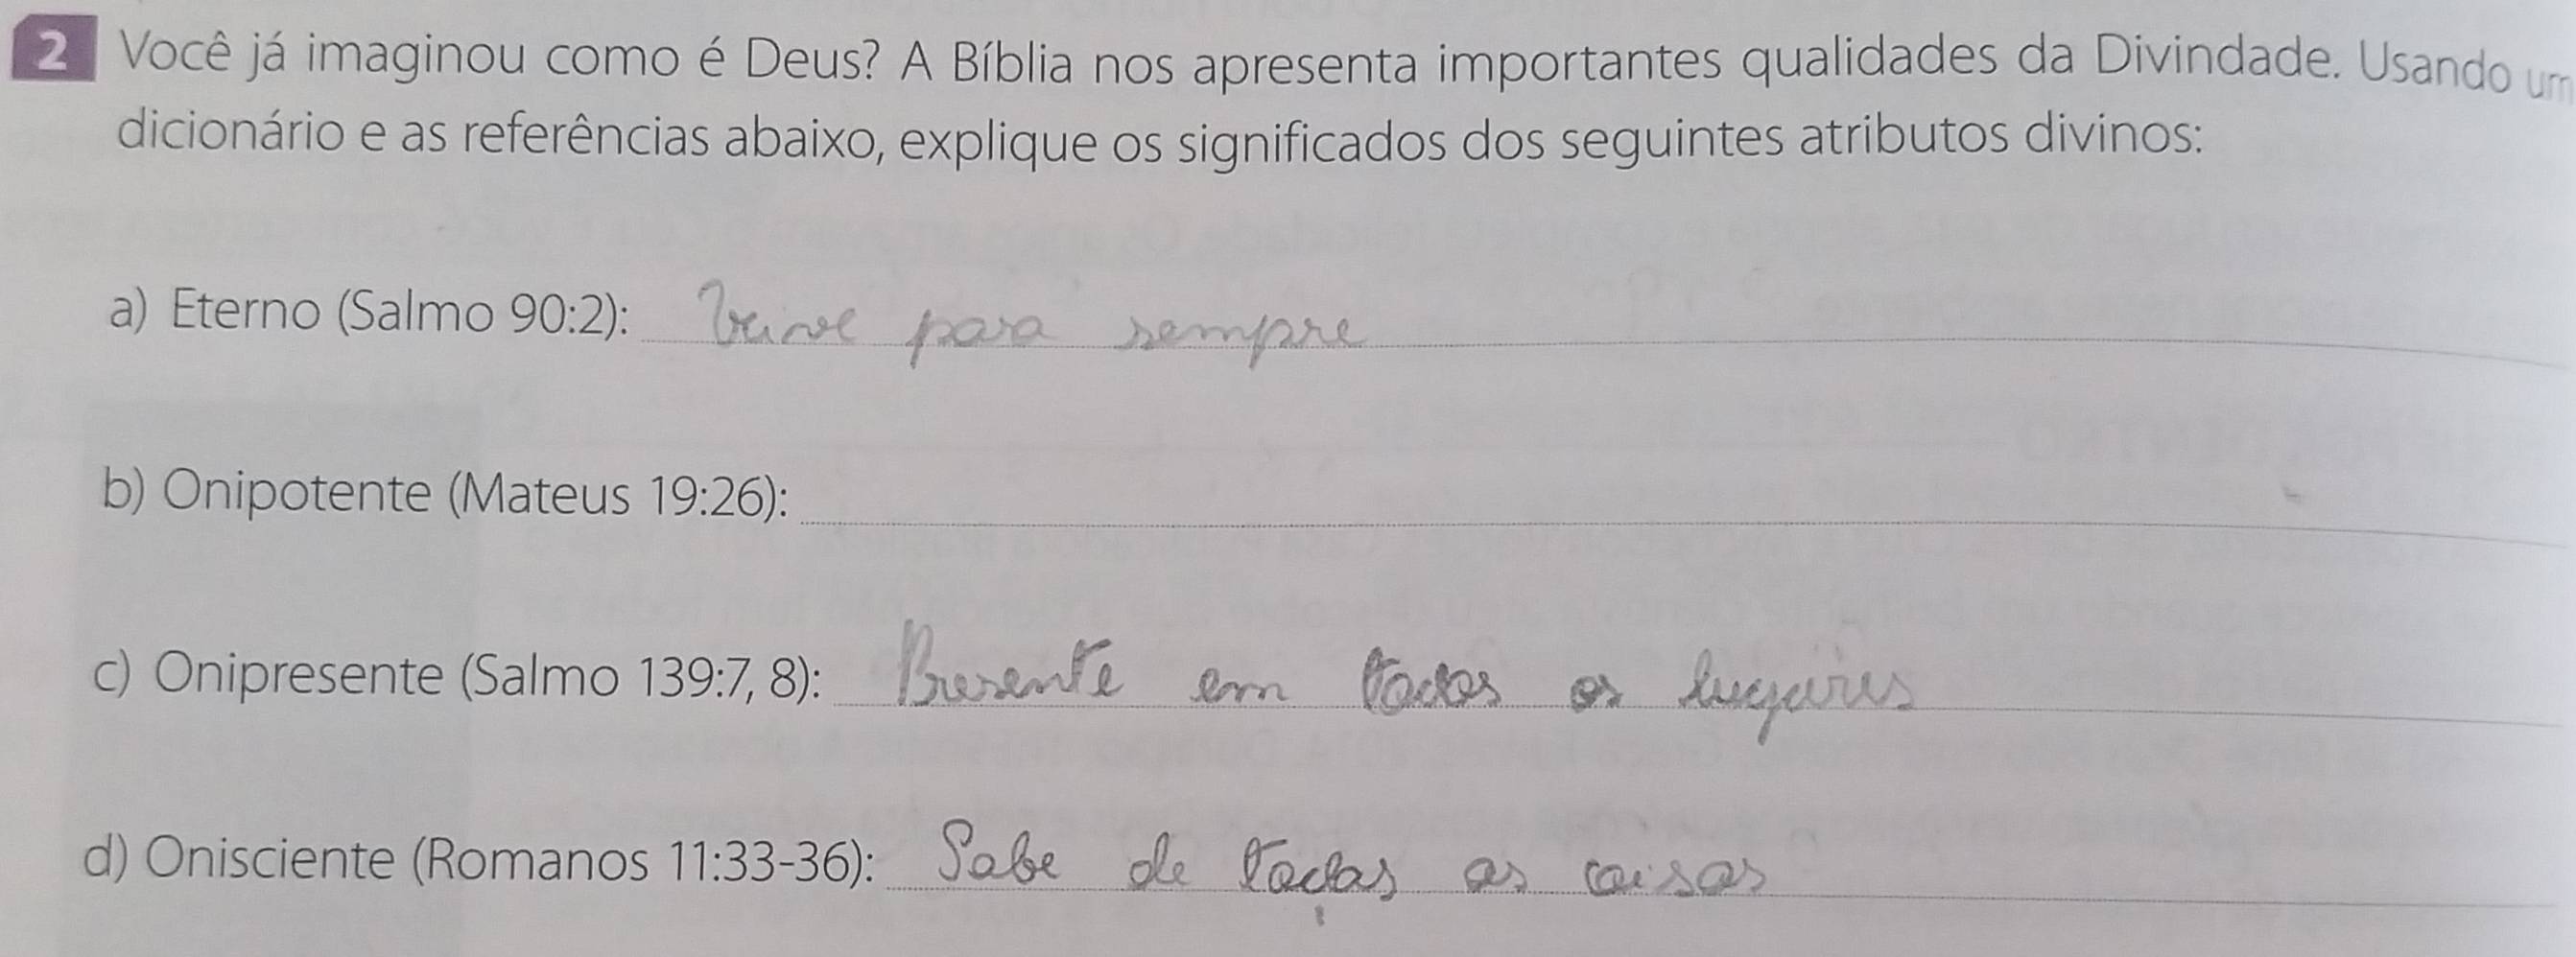 2 Você já imaginou como é Deus? A Bíblia nos apresenta importantes qualidades da Divindade. Usando um
dicionário e as referências abaixo, explique os significados dos seguintes atributos divinos:
a) Eterno (Salmo 90:2): para sempre
b) Onipotente (Mateus 19:26):
c) Onipresente (Salmo 139:7, 8): Presente em todos os lugares
d) Onisciente (Romanos 11:33-36): Sabe de todas as coisas